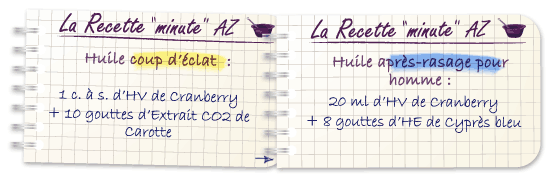 La Recette "minute" AZ
Huile coup d'éclat :
1 c. à s. d'HV de Cranberry
+ 10 gouttes d'Extrait CO2 de
Carotte
La Recette "minute" AZ
Huile après-rasage pour
homme :
20 ml d'HV de Cranberry
+ 8 gouttes d'HE de Cyprès bleu